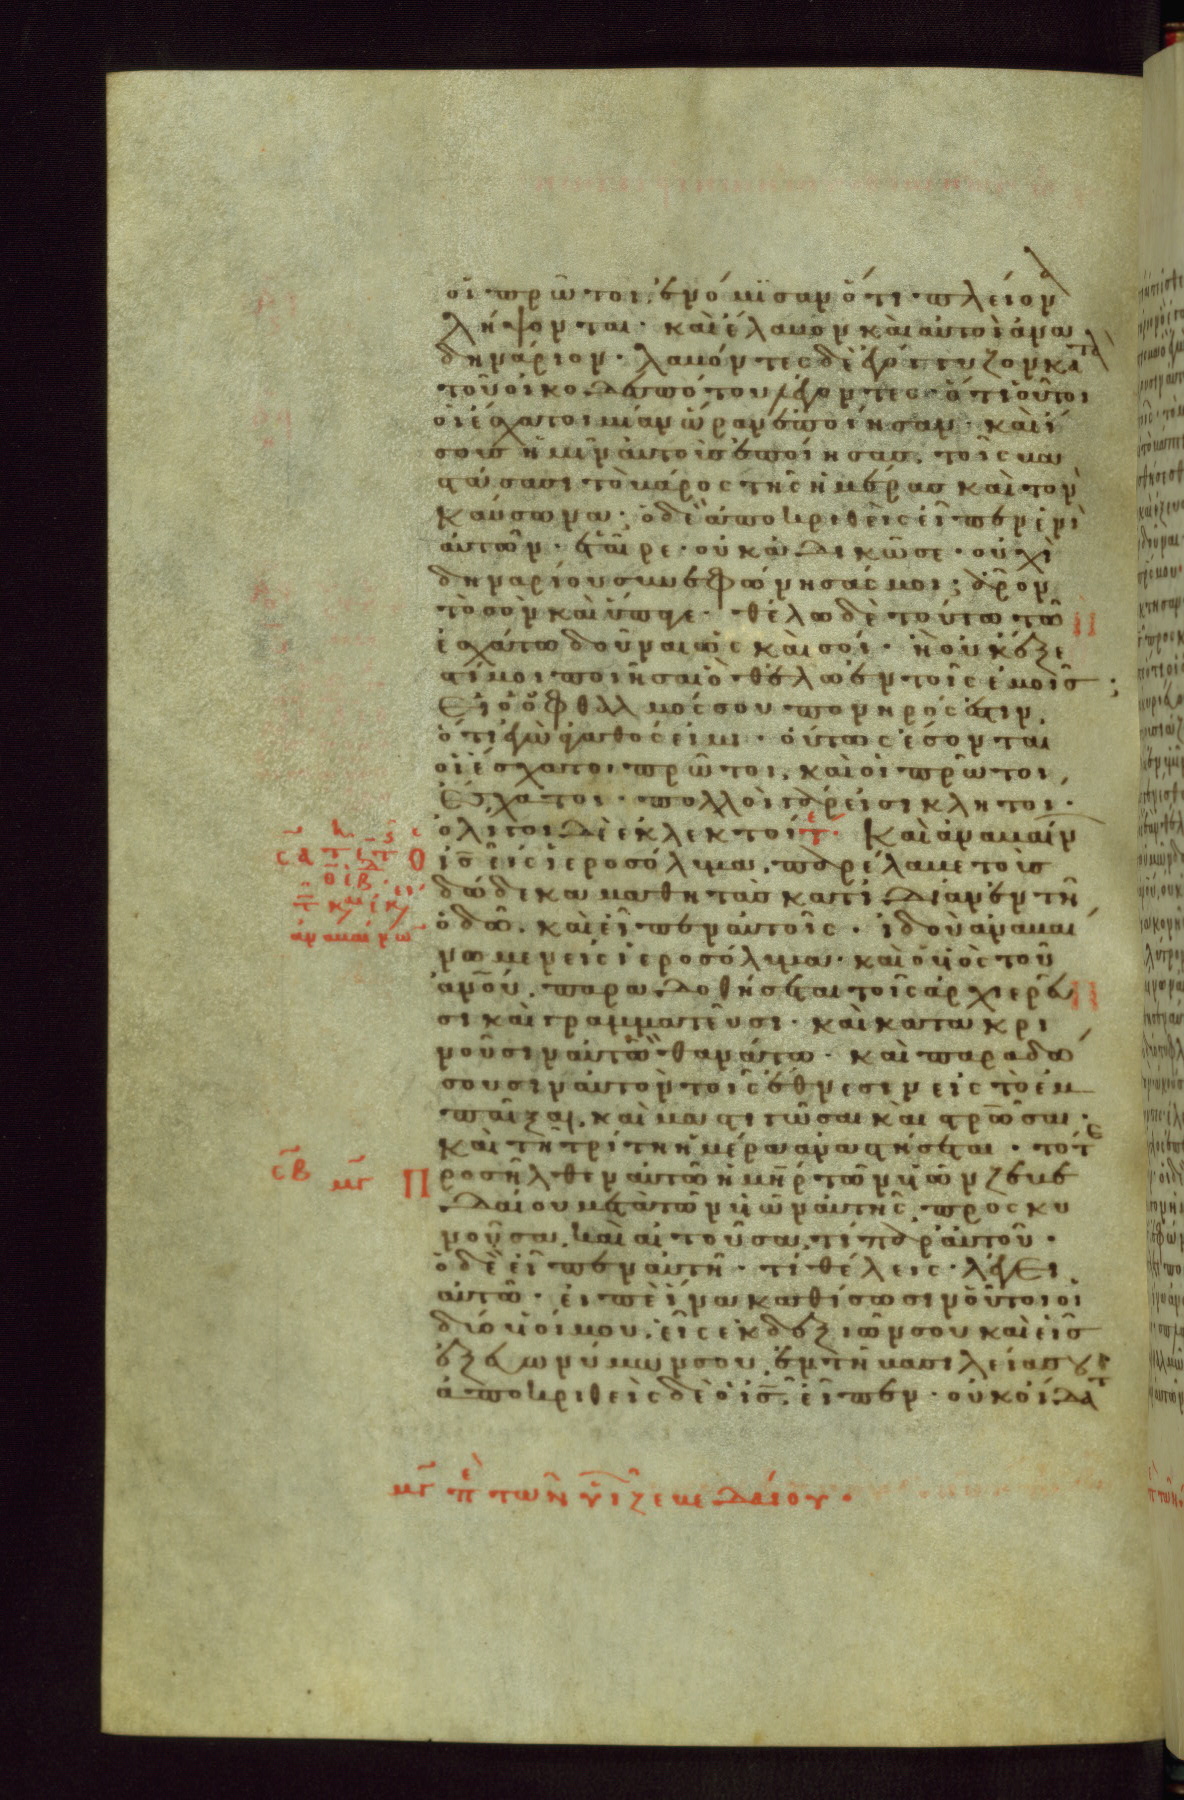 οἱ πρῶτοι, ἐνόμϊσαν ὅτι πλείονα
λήψονται· καὶ ἔλαβον καὶ αὐτοὶ ἀνα
δηνάριον· λαβόντες δὲ ἐγόγγυζον κατὰ
τοῦ οἰκοδεσπότου λέγοντες· ὅτι οὗτοι
οἱ ἔσχατοι μίαν ὥραν ἐποίησαν· καὶ ἴ
σους ἡμῖν αὐτοὺς ἐποίησας, τοῖς βα
στάσασι τὸ βάρος τῆς ἡμέρας καὶ τὸν
καύσωνα· ὁ δὲ ἀποκριθεὶς εἶπεν ἑνὶ
αὐτῶν· ἑταῖρε· οὐκ ἀδικῶ σε· οὐχὶ
δηναρίου συνεφώνησάς μοι; ἆρον
τὸ σὸν καὶ ὕπαγε· θέλω δὲ τούτω τῶ
ἐσχάτω δοῦναι ὡς καὶ σοί· ἢ οὐκ ἔξε
στί μοι ποιῆσαι ὃ θέλω ἐν τοῖς ἐμοῖς;
Εἰ ὁ ὀφθαλμός σου πονηρός ἐστιν,
ὅτι ἐγὼ ἀγαθός εἰμι· οὕτως ἔσονται
οἱ ἔσχατοι πρῶτοι, καὶ οἱ πρῶτοι
ἔσχατοι· πολλοὶ γάρ εἰσι κλητοί·
ὀλίγοι δὲ ἐκλεκτοί· Καὶ ἀναβαίν
ων
ὁ ις εἰς ἱεροσόλυμα, παρέλαβε τοὺς
δώδεκα μαθητὰς κατιδίαν ἐν τῆ
ὁδῶ, καὶ εἶπεν αὐτοῖς· ἰδοὺ ἀναβαί
νομεν εἰς ἱεροσόλυμα· καὶ ὁ υἱὸς τοῦ
ἀνου παραδοθήσεται τοῖς ἀρχιερεῦ
σι καὶ γραμματεῦσι· καὶ κατακρι
νοῦσιν αὐτὸν θανάτω· καὶ παραδώ
σουσιν αὐτὸν τοῖς ἔθνεσιν εἰς τὸ ἐμ
παῖξαι, καὶ μαστιγῶσαι καὶ στρωσαι·
καὶ τῆ τρίτη ἡμέρα ἀναστήσεται· τότε
σβ μγ Προσῆλθεν αὐτῶ ἡ μηρ τῶν υἱῶν ζεβε
δαίου μετὰ τῶν υἱῶν αὐτῆς, προσκυ
νοῦσα, καὶ αἰτοῦσα, τι παρ αὐτοῦ·
ὁ δὲ εἶπεν αὐτῆ· τί θέλεις· λέγει
αὐτῶ· εἰπὲ ἵνα καθίσωσιν οὗτοι οἱ
δύο υἱοί μου, εἷς ἐκ δεξιῶν σου καὶ εἷς
ἐξ εὐωνύμων σου, ἐν τῆ βασιλεία σου
ἀποκριθεὶς δὲ ὁ ις, εἶπεν· οὐκ οἴδατ
μγ πε τῶν υι ζεβεδαίου·